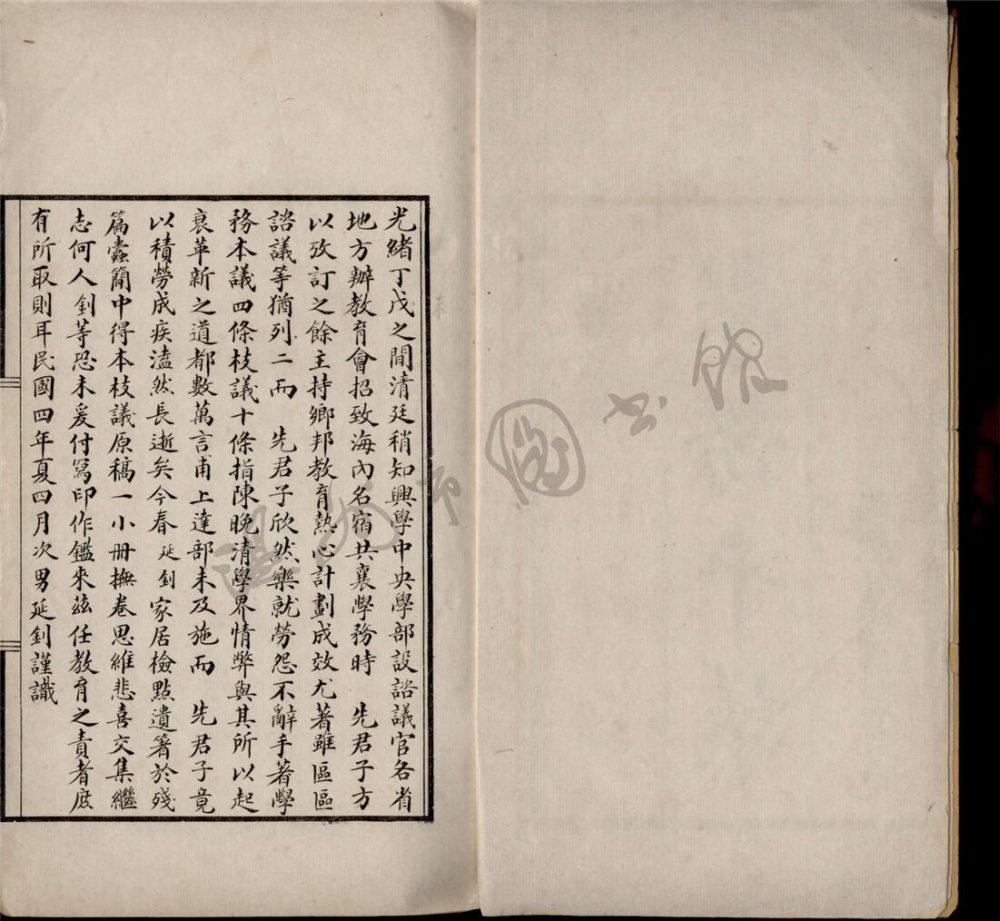 光緒丁戊之間清廷稍知興學中央學部設諮議官各省
地方辦教育會招致海內名宿共襄學務時　先君子方
以攷訂之餘主持鄉邦教育熱心計劃成效尤著雖區區
諮議等猶列二而　先君子欣然樂就勞怨不辭手著學
務本議四條枝議十條指陳晚清學界情弊與其所以起
衰革新之道都數萬言甫上達部未及施而　先君子竟
以積勞成疾溘然長逝矣今春延釗家居檢點遺箸於殘
篇蠹簡中得本枝議原稿一小冊撫卷思維悲喜交集繼
志何人釗等恐未爰付寫印作鑑來茲任教育之責者庶
有所取則耳民國四年夏四月次男延釗謹識
市圖書館